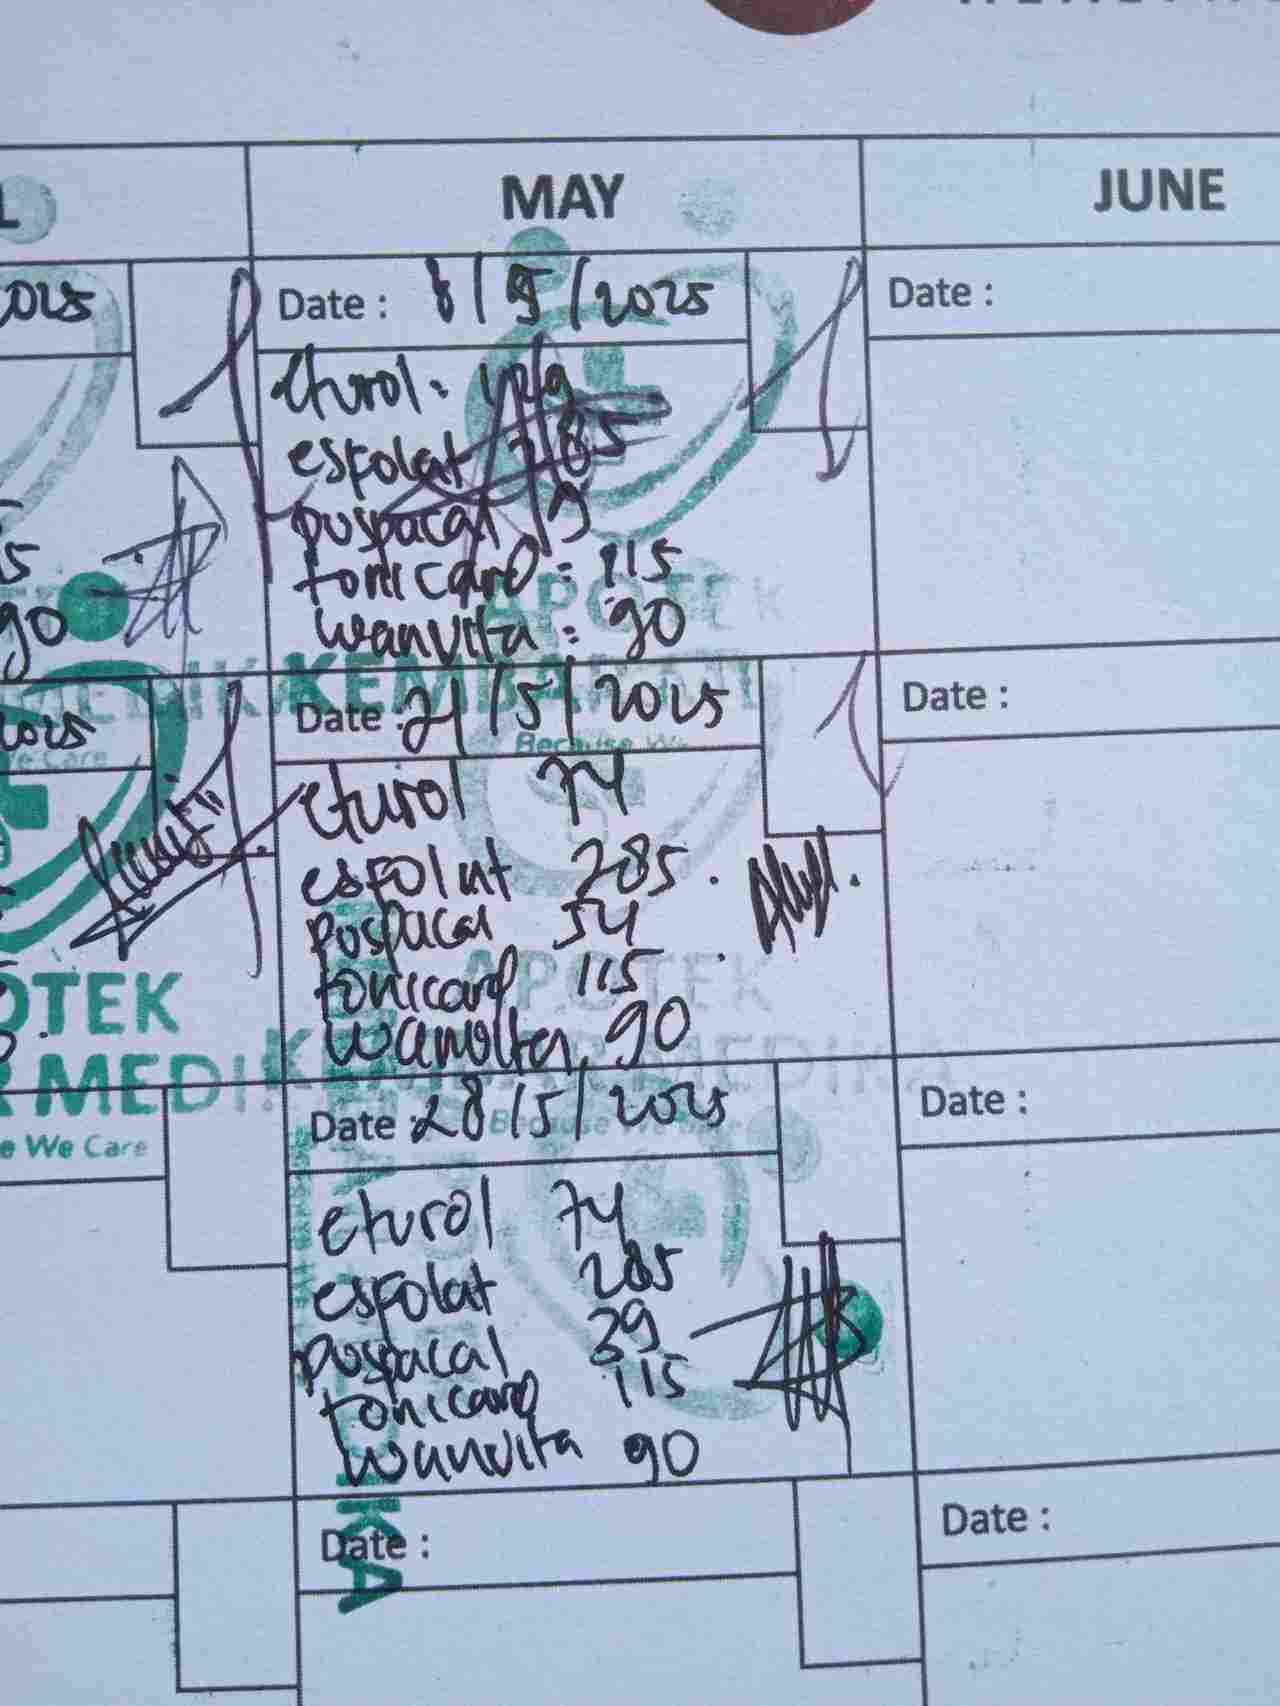 MAY
JUNE
2025
Date : 8/5/2025
Date :
eturol :
esfolat 285
pospacal
tonicard : 115
wanvita : 90
90
APOTEK
KEMBAR
Date : 21/5/2025
Date :
2025
Because We
We Care
eturol 74
esfolat 285.
pospacal 54
tonicard 115
wanvita, 90
APOTEK
KEMBAR MEDIKA
OTEK
R MEDI
e We Care
Date : 28/5/2025
Because We Care
Date :
eturol 74
esfolat 285
pospacal 39
tonicard 115
wanvita 90
Date :
Date :
KA